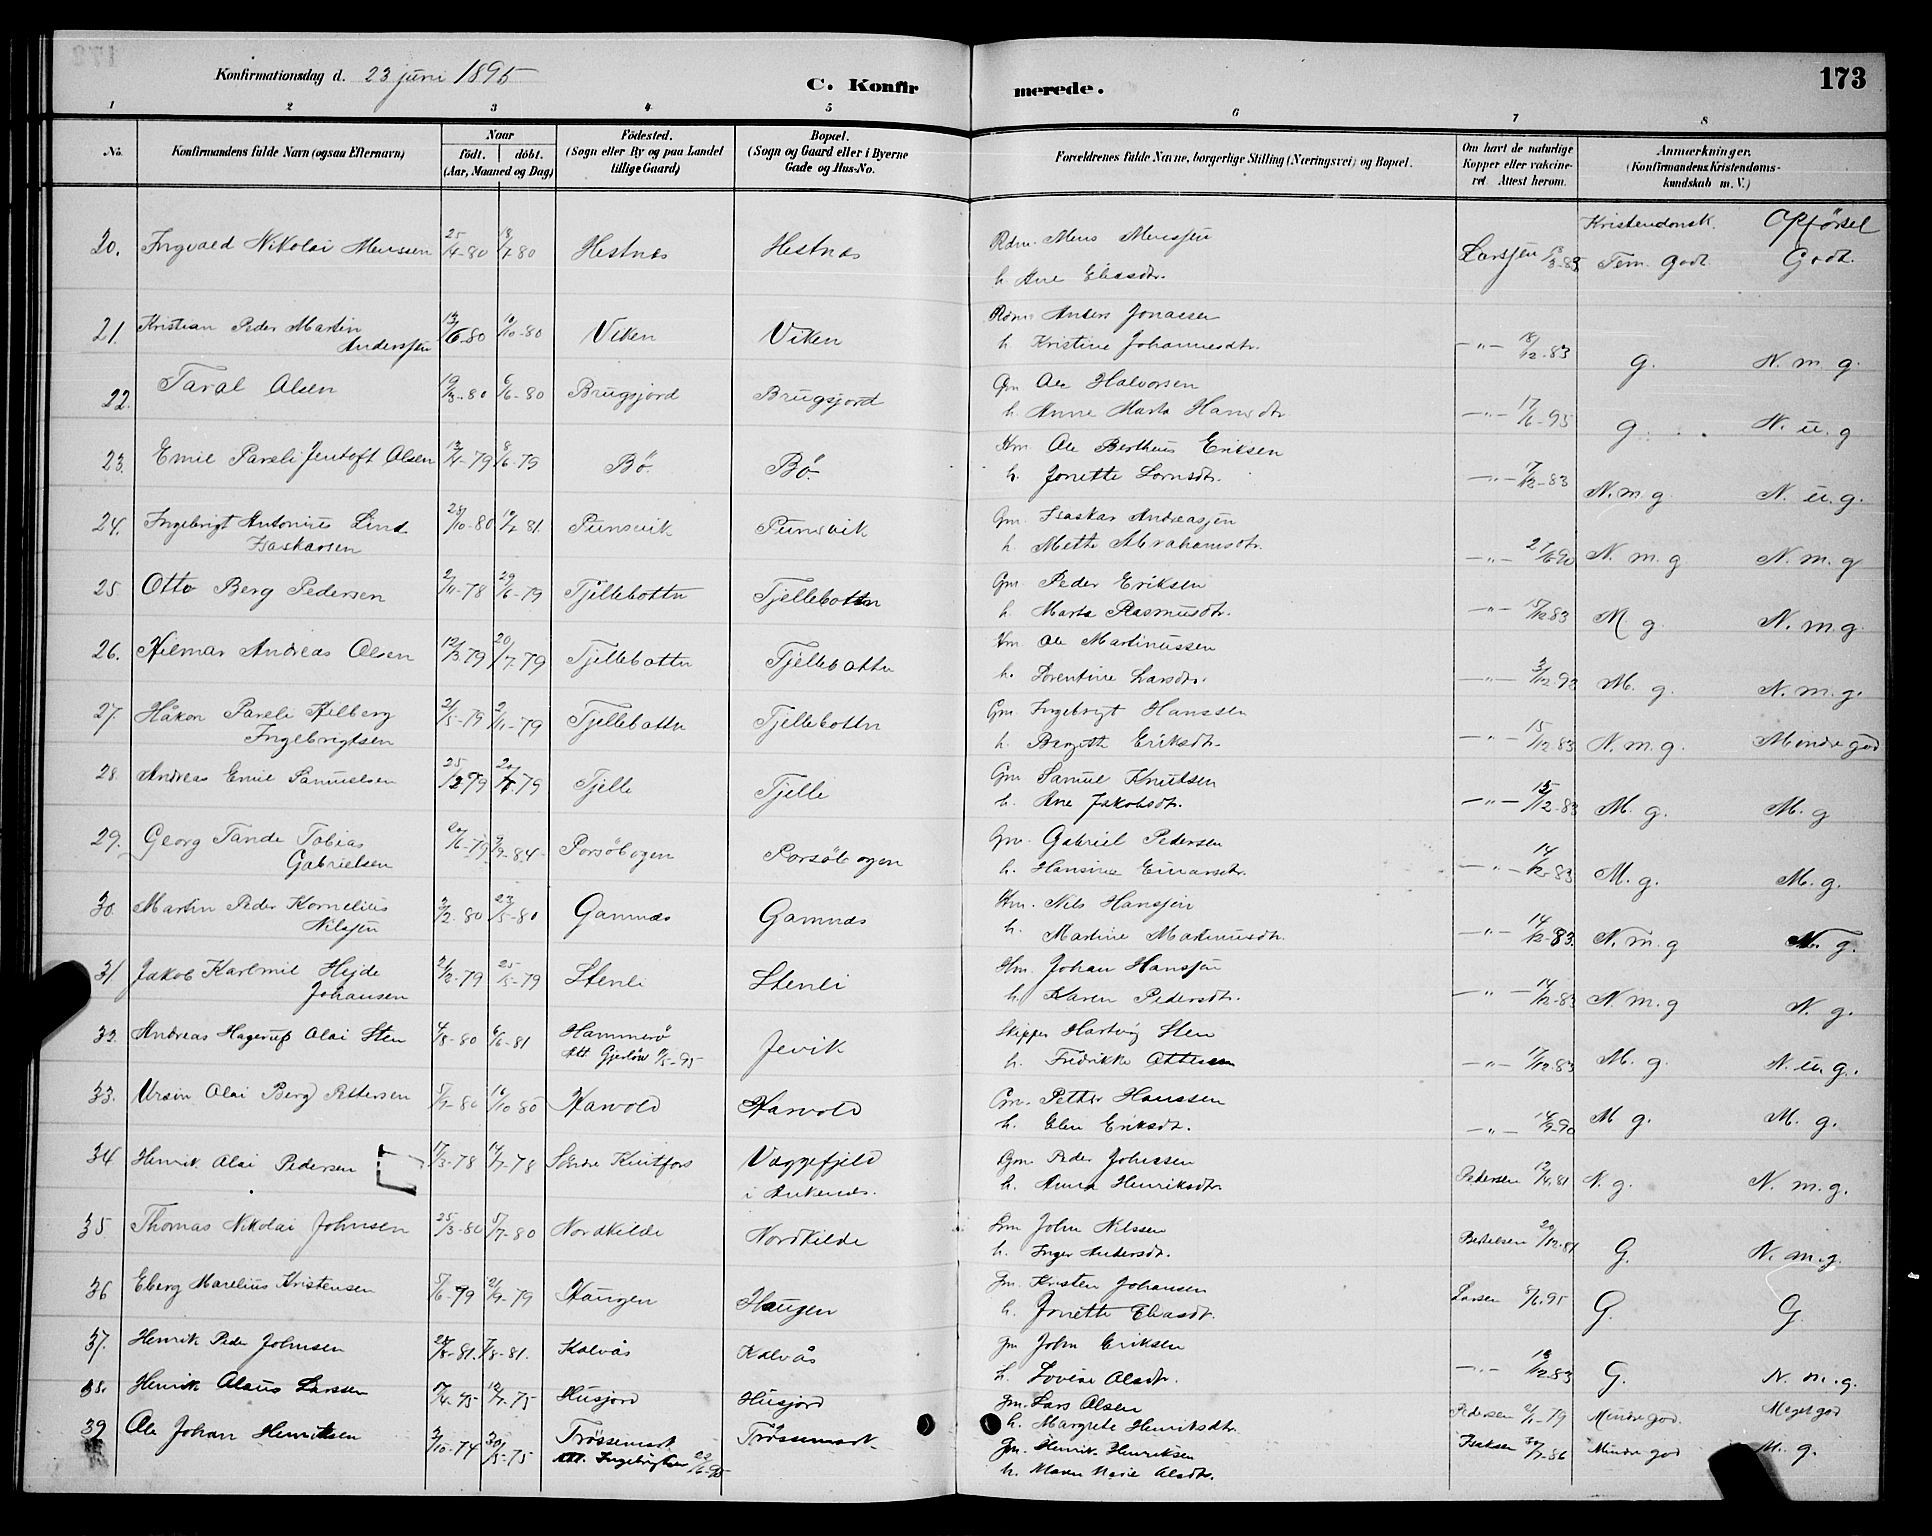 173
Konfirmationsdag d. 23 juni 1895
C. Konfirmerede.
1 2 3 4 5 6 7 8
No.
Konfirmandens fulde Navn (ogsaa Efternavn)
Naar
födt. döbt.
(Aar, Maaned og Dag)
Födested.
(Sogn eller By og paa Landet
tillige Gaard)
Bopæl.
(Sogn og Gaard eller i Byerne
Gade og Hus-No.
Forældrenes fulde Navne, borgerlige Stilling (Næringsvei) og Bopæl.
Om havt de naturlige
Kopper eller vakcine-
ret. Attest herom.
Anmærkninger.
(Konfirmandens Kristendoms-
kundskab m. V.)
Kristendomsk. Opförsel
20. Ingvald Nikolai Monssen 25/4-80 Hestnes Hestnes Mons Monssen Larssen Tem. godt. Godt.
h. Ane Eliasdtr.
21. Kristian Peder Martin 6-80 10-80 Viken Viken Anders Jonassen
Anderssen h. Kristine Johannesdtr. -"- 18/12-83 g. N. m. g.
22. Taral Olsen 19/3-80 6/6-80 Brugsjord Brugsjord Gm Ole Halvorsen
h. Anne Marta Hansdtr -"- 17/6-95 g. N. u. g
23. Emil Pareli Jentoft Olsen 13/4-79 8/6-79 Bö. Bö. Hm. Ole Bertheus Eriksen
h. Jonette Larsdtr. -"- 17/12-83 N. m. g. N. u. g.
24. Ingebrigt Antonius Lind 28/10-80 81 Punsvik Punsvik Gm. Isaskar Andreassen
Isaskarsen h. Mette Abrahamsdtr. -"- N. m. g N. m. g
25 Otto Berg Pedersen 2/11-78 29/6-79 Tjellebottn Tjellebottn Gm. Peder Eriksen
h. Marta Rasmusdtr. -"- 15/12 83 M. g. N. m. g.
26. Hilmar Andreas Olsen 12/3 79 20/7-79 Tjellebottn Tjellebottn Hm. Ole Martinussen
h. Lorentine Larsdtr. -"- 3/12-93 M. g. N. m. g.
27. Håkon Pareli Hilberg 21/5-79 2/11-79 Tjellebottn Tjellebottn Gm. Ingebrigt Hanssen
Ingebrigtsen h. Bergith Eriksdtr. -"- 15/12 83 N. m. g. Mindre god
28. Andreas Emil Samuelsen 25/12 79 Tjelle Tjelle Gm Samuel Knutsen
h. Ane Jakobsdtr. -"- 15/12-83 M. g. M. g
29. Georg Tande Tobias 79 84 Porsöbogen Porsöbogen Gm. Gabriel Pedersen
Gabrielsen h. Hansine Einarsdtr. -"- 14/12-83 M. g. M. g.
30. Martin Peder Kornelius 2-80 23/5-80 Gamnes Gamnes Hm. Nils Hanssen
Nilssen h. Martine Martinusdtr. -"- 14/12-83. N. m. g N. g.
31 Jakob Karlmil Hejde 21/2-79 25/5-79 Stenli Stenli Hm. Johan Hanssen
Johansen h. Karen Pedersdtr. -"- 14/12-83 N. m. g N. g.
32. Andreas Hagerup Olai Sten 4/8-80 6/6-81 Hammerö Jevik Skipper Hartvig Sten
Att Gjerlöw 95 h. Fredrikke Ottesen -"- 17/12-83 M. g. N. u. g.
33. Ursin Olai Berg Pettersen 80 10 80 Karvold Karvold Gm. Petter Hanssen
h. Elen Eriksdtr. -"- 90 M g. M. g.
34 Henrik Olai Pedersen 17/3-78 78 Söndre Knutfors Vaggefjeld Gm. Peder Johnssen
i Ankenes. h. Anna Henriksdtr. Pedersen 81 N. g. N. m. g.
35 Thomas Nikolai Johnsen 25/3-80 5/7-80 Nordkilde Nordkilde John Nilssen
h. Inger Andersdtr. Bertelsen 20/12-81 G. N. m. g.
36 Eberg Marelius Kristensen 5/6-79 21/9-79 Haugen Haugen Gm. Kristen Johansen
h. Jonette Eliasdtr. Larsen 8/6 95 G. G.
37. Henrik Peder Johnsen 81. 81. Kalvås Kalvås Gm John Eriksen
h. Lovise Olsdtr. -"- 18/12 83 G. N. m. g.
38. Henrik Olaus Larssen 75 75 Husjord Husjord Gm. Lars Olsen
h. Margrete Henriksdtr. Pedersen 79 Mindre god. Meget god
39 Ole Johan Henriksen 3/10-74 30/5-75 Trössemark Trössemark Gm. Henrik Henriksen Isaksen 86 Mindre god M. g.
Att. Ingebrigtsen 22/6-95 h. Maren Marie Olsdtr.